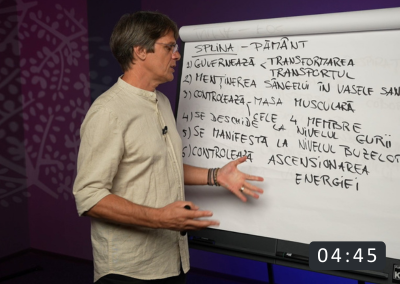 SPLINA - PĂMÂNT
1) GUVERNEAZĂ < TRANSFORMAREA
TRANSPORTUL
2) MENȚINEREA SÂNGELUI ÎN VASELE SAN
3) CONTROLEAZĂ < MASA MUSCULARĂ
CELE 4 MEMBRE
4) SE DESCHIDE LA NIVELUL GURII
5) SE MANIFESTĂ LA NIVELUL BUZELOR
6) CONTROLEAZĂ ASCENSIONAREA
ENERGIEI
04:45